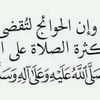 وإن الحوائج لتقضى
كثرة الصلاة على ا
صَلَّى اللَّهُ عَلَيْهِ وَعَلَى آلِهِ وَسَلَّ